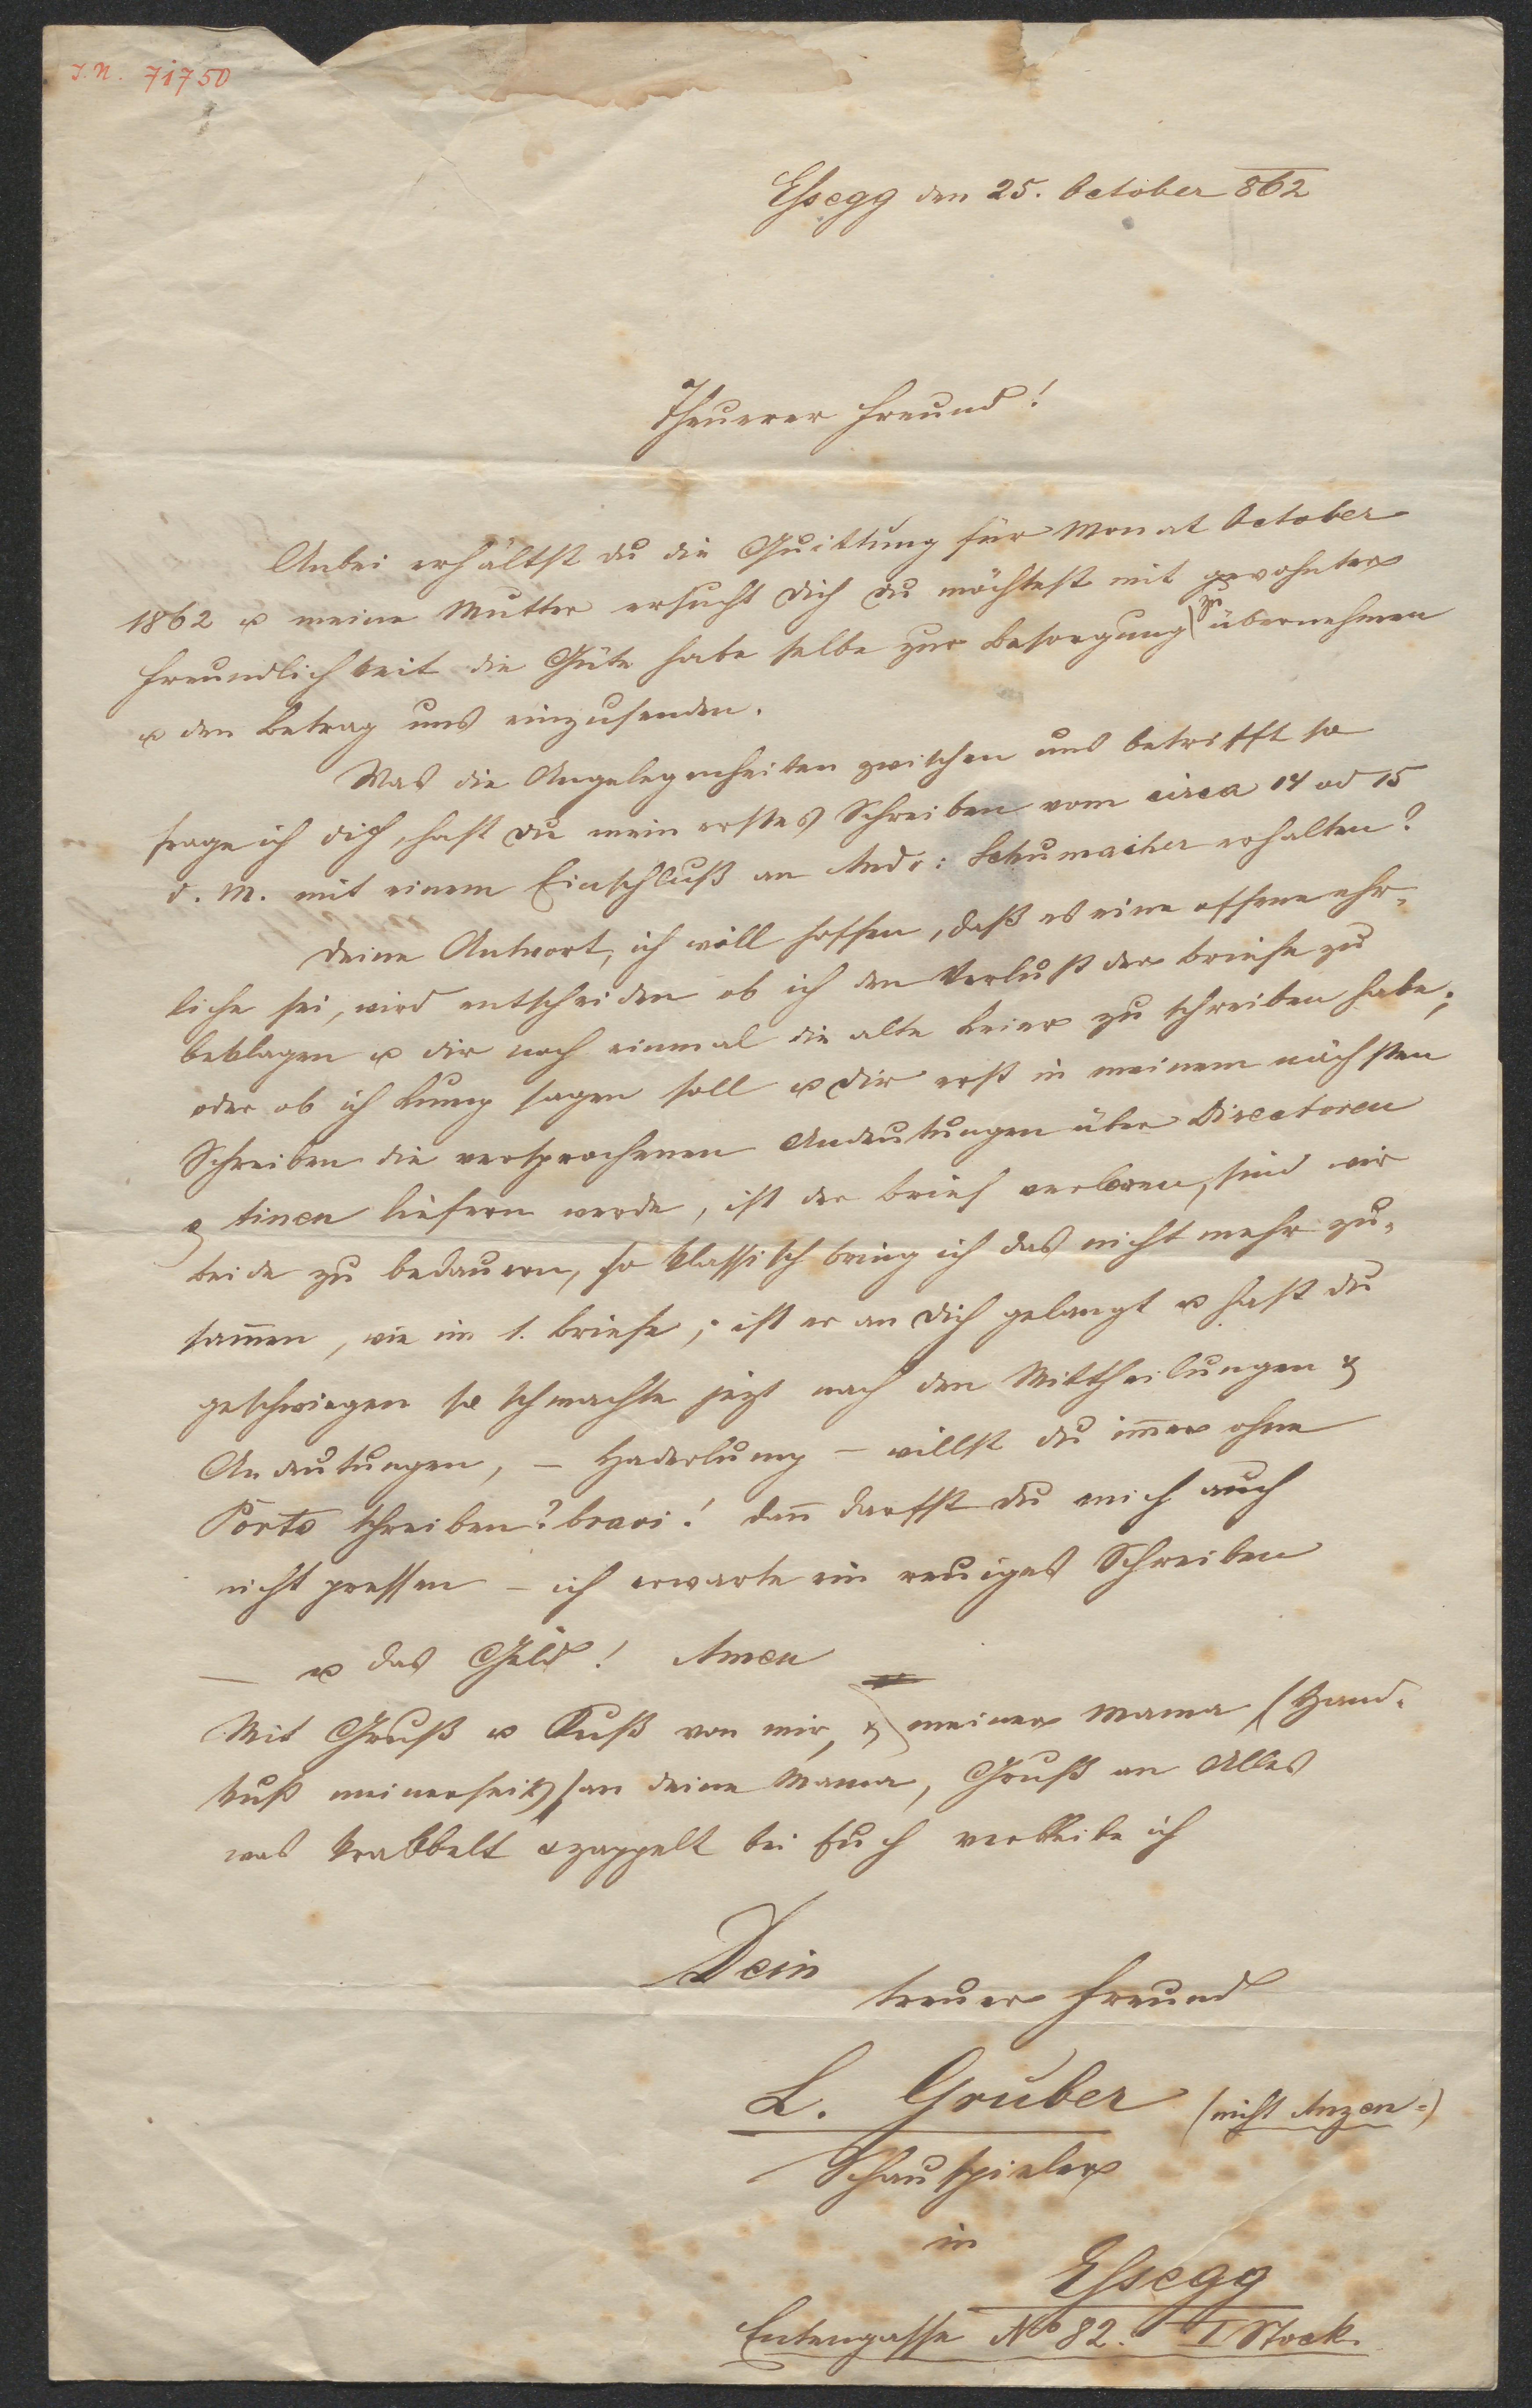 I. N. 71750
Essegg den 25. October 862
Theuerer Freund!
Anbei erhältst du die Quittung für Monat October
1862 u meine Mutter ersucht dich du möchtest mit gewohnter
Freundlichkeit die Güte habe selbe zur Besorgung zu übernehmen
u den Betrag uns einzusenden.
Was die Angelegenheiten zwischen uns betrifft so
frage ich dich, hast du mein erstes Schreiben vom circa 14 od 15
d. M. mit einem Einschluß an Andr: Schumacher erhalten?
Deine Antwort, ich will hoffen, daß es eine offene ehr-
liche sei, wird entscheiden ob ich den Verlust der Briefe zu
beklagen u dir noch einmal die alte Leier zu schreiben habe;
oder ob ich Lump sagen soll u dir erst in meinem nächsten
Schreiben die versprochenen Andeutungen über Directoren
& tinen liefern werde, ist der Brief verloren, sind wir
beide zu bedauern, so klassisch bring ich das nicht mehr zu-
sam̅en, wie im 1. Briefe; ist er an dich gelangt u hast du
geschwiegen so schmachte jezt nach den Mittheilungen &
Andeutungen, – Haderlump – willst du im̅er ohne
Porto schreiben? bravi! dan̅ darfst du mich auch
nicht pressen – ich erwarte ein reuiges Schreiben
– u das Geld! Amen
Mit Gruß u Kuß von mir, & meiner Mama (Hand-
kuß meinerseits) an deine Mama, Gruß an Alles
was krabbelt & zappelt bei Euch verbleibe ich
Dein
treuer Freund
L. Gruber (nicht Anzen-)
Schauspieler
in
Essegg
Entengasse No 82. I Stock.